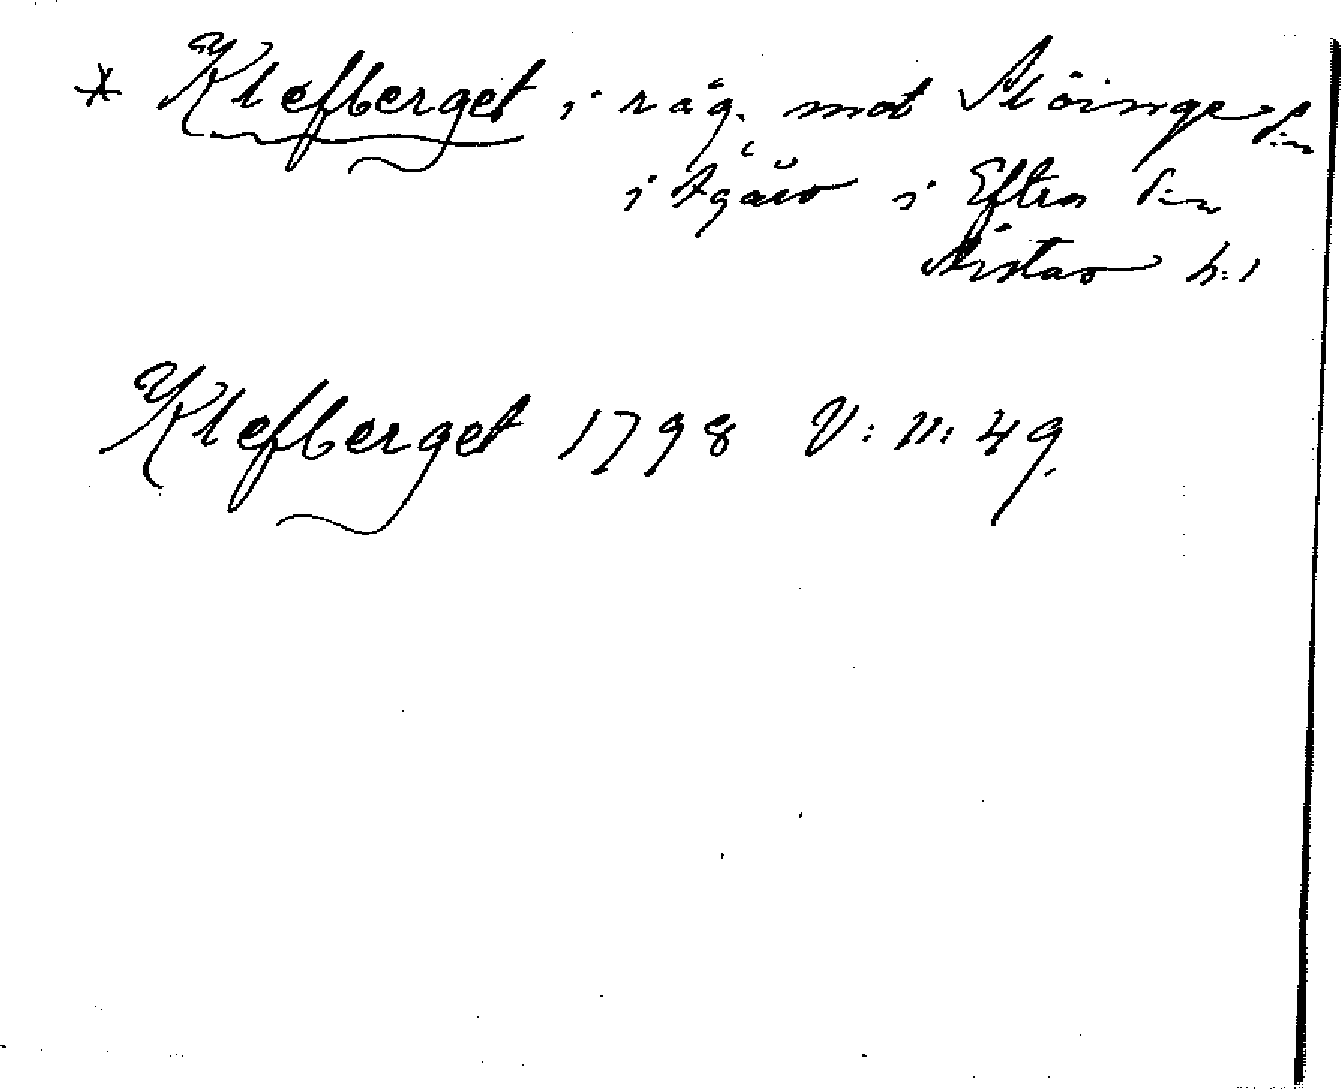 * Klefberget i råg. mot Slöinge s:n
i Eftra s:n
Årstad h:d
Klefberget 1798 V: 11: 49.